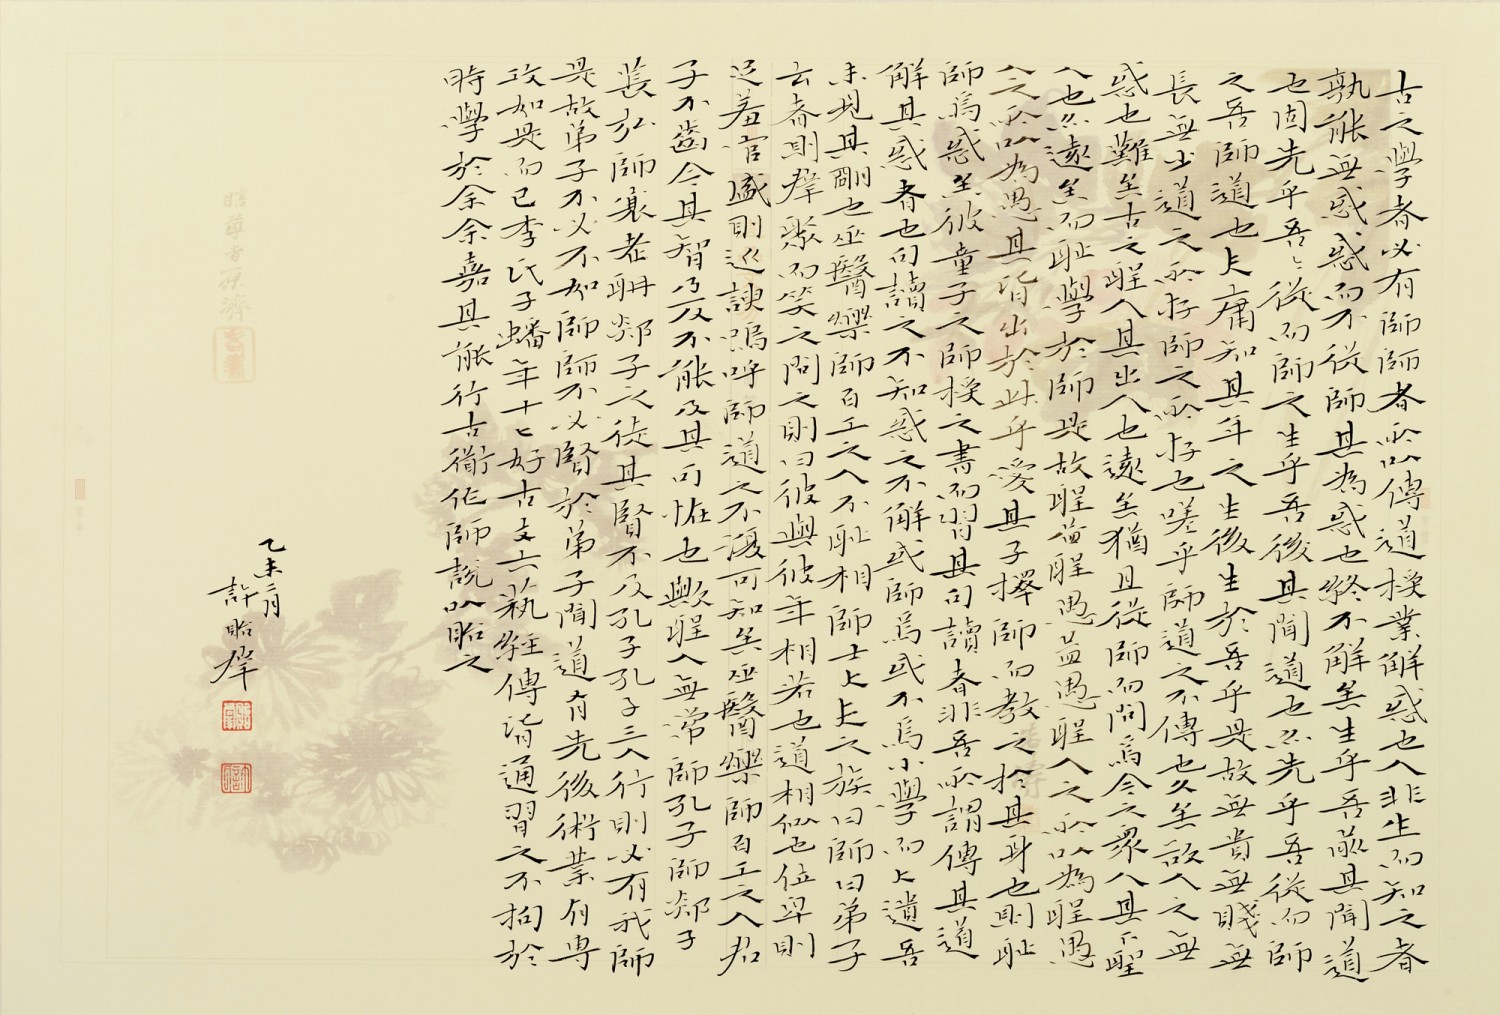 古之學者必有師師者所以傳道授業解惑也人非生而知之者
孰能無惑惑而不從師其為惑也終不解矣生乎吾前其聞道
也固先乎吾〻從而師之生乎吾後其聞道也亦先乎吾從而師
之吾師道也夫庸知其年之先後生於吾乎是故無貴無賤無
長無少道之所存師之所存也嗟乎師道之不傳也久矣欲人之無
惑也難矣古之聖人其出人也遠矣猶且從師而問焉今之眾人其下聖
人也亦遠矣而恥學於師是故聖益聖愚益愚聖人之所以為聖愚
人之所以為愚其皆出於此乎愛其子擇師而教之於其身也則恥
師焉惑矣彼童子之師授之書而習其句讀者非吾所謂傳其道
解其惑者也句讀之不知惑之不解或師焉或不焉小學而大遺吾
未見其明也巫醫樂師百工之人不恥相師士大夫之族曰師曰弟子
云者則群聚而笑之問之則曰彼與彼年相若也道相似也位卑則
足羞官盛則近諛嗚呼師道之不復可知矣巫醫樂師百工之人君
子不齒今其智乃反不能及其可怪也歟聖人無常師孔子師郯子
萇弘師襄老聃郯子之徒其賢不及孔子孔子三人行則必有我師
是故弟子不必不如師師不必賢於弟子聞道有先後術業有專
攻如是而已李氏子蟠年十七好古文六藝經傳皆通習之不拘於
時學於余余嘉其能行古衜作師說以貽之
乙未二月
許